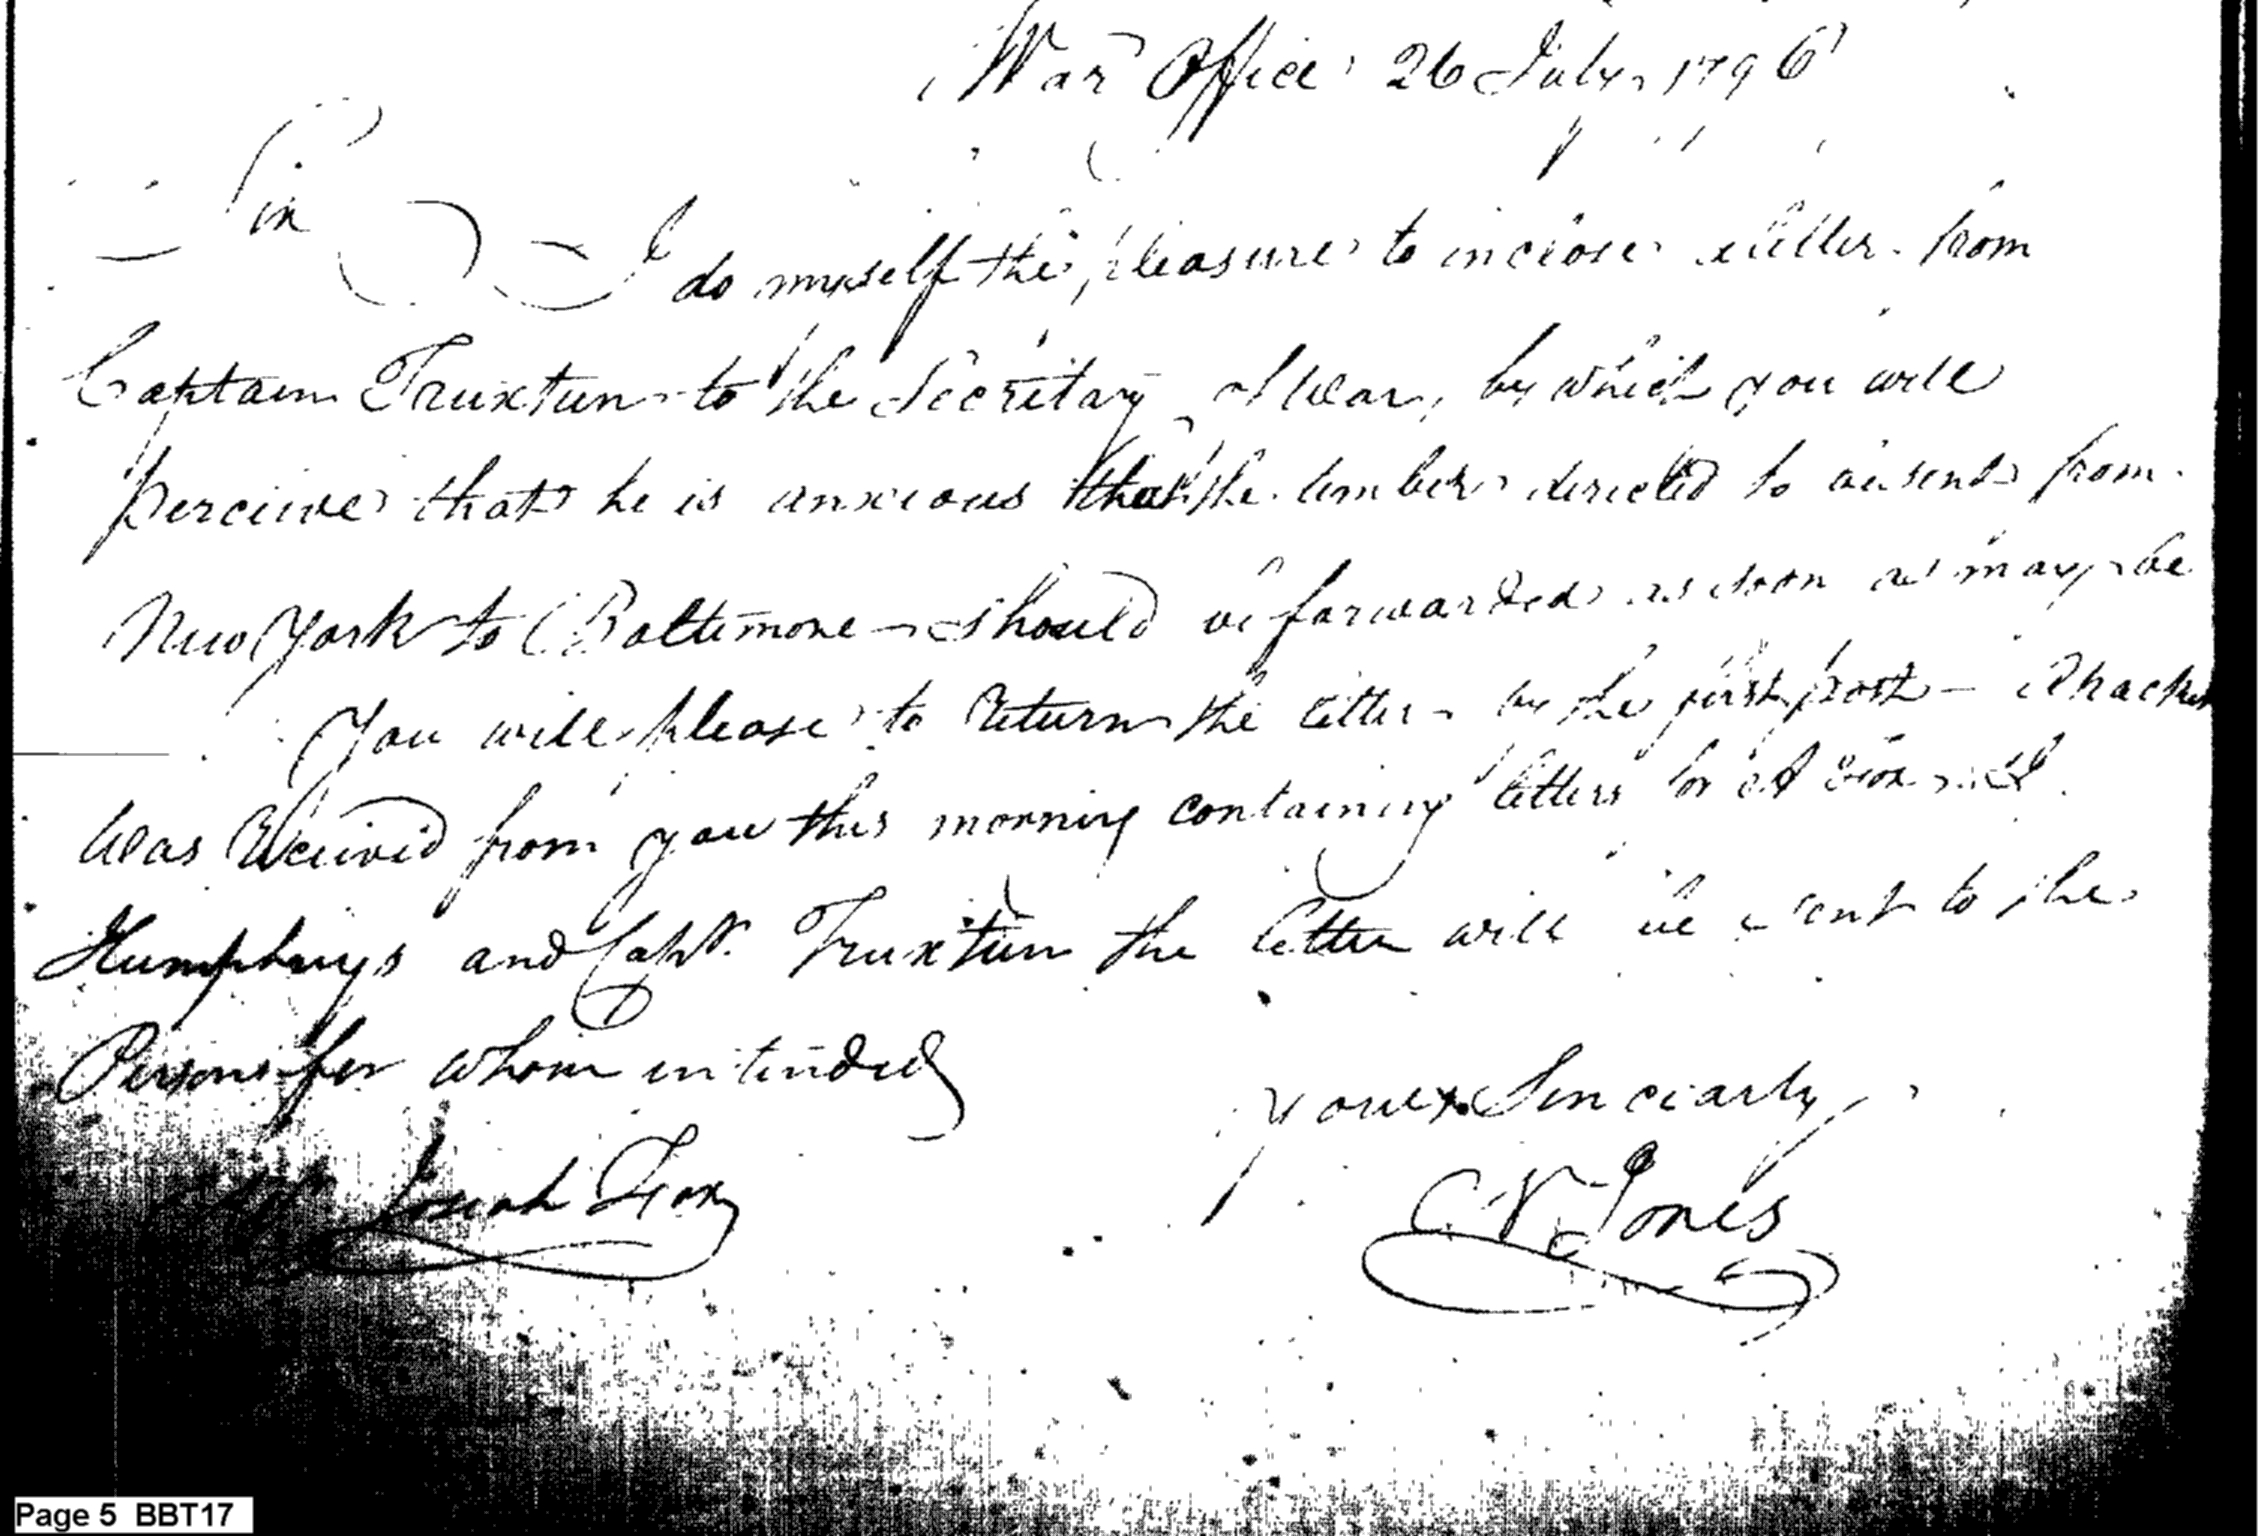 War Office 26 July 1796
Sir
I do myself the pleasure to inclose a letter from
Captain Truxtun to the Secretary of War, by which you will
perceive that he is anxious that the timber directed to be sent from
New York to Baltimore should be forwarded as soon as may be
You will please to return the letter by the first post — A packet
was received from you this morning containing letters for
Humphreys and Capt. Truxtun the letter will be sent to the
Persons for whom intended
yours Sinciarly
Josiah Fox
C W Jones
Page 5 BBT17